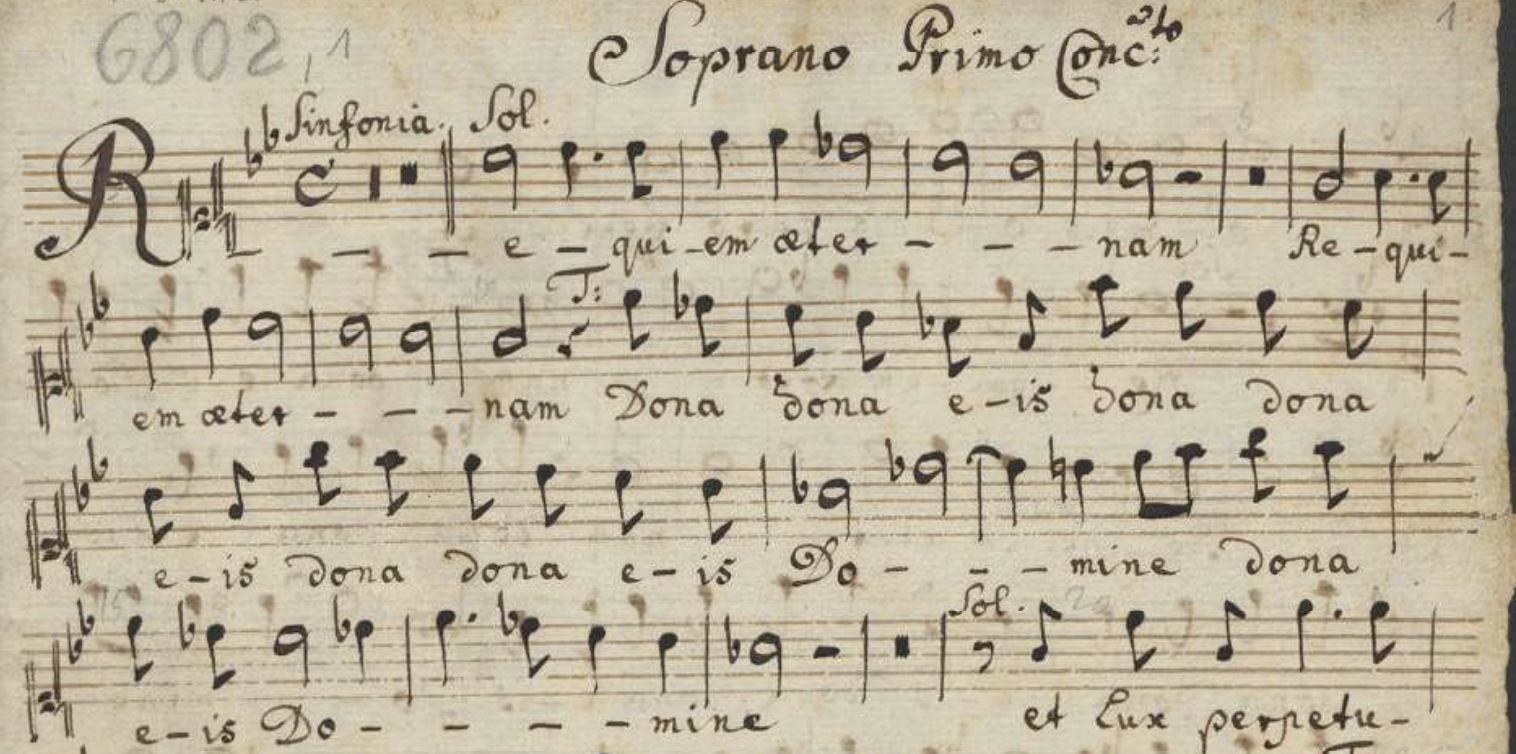 6802,1
1
Soprano Primo Conc:to
Sinfonia. Sol.
R - - - e - qui - em æter - - - nam Re - qui -
T:
em æter - - - nam Dona dona e - is dona dona
e - is dona dona e - is Do - - - mine dona
Sol.
e - is Do - - - - mine et Lux perpetu -